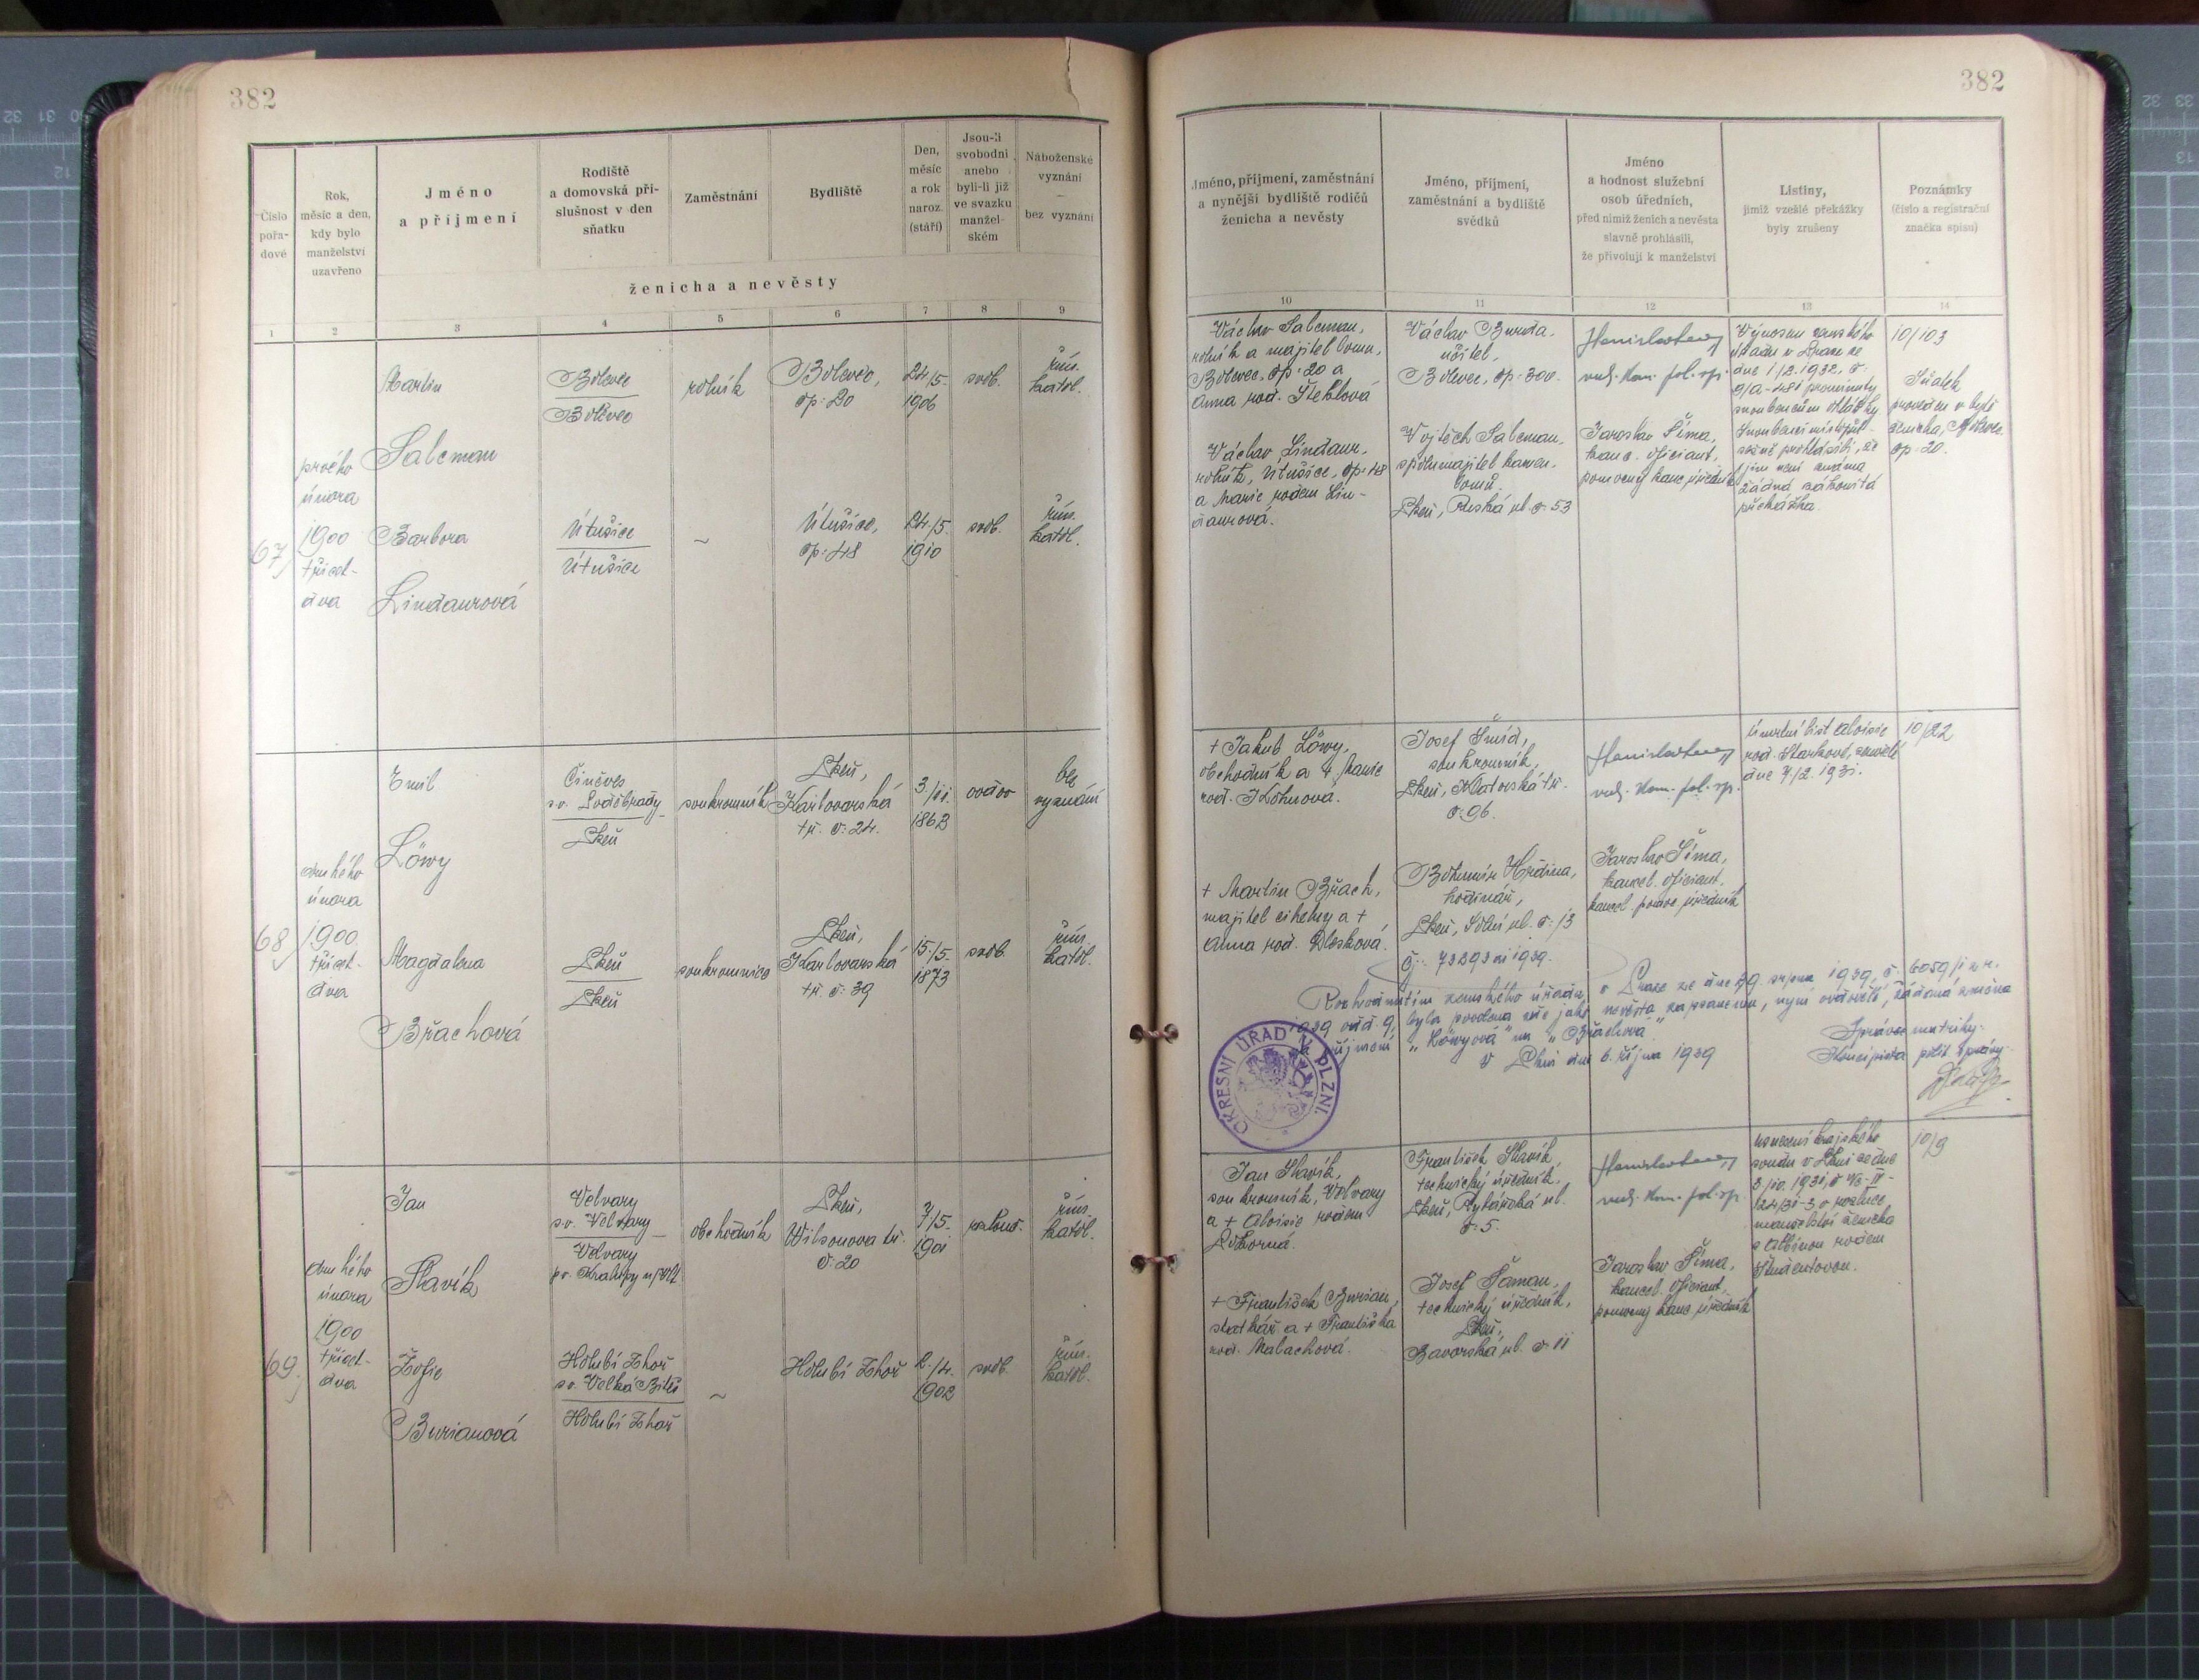 382
Číslo pořa- dové
Rok, měsíc a den, kdy bylo manželství uzavřeno
Jméno a příjmení
Rodiště a domovská pří- slušnost v den sňatku
Zaměstnání
Bydliště
Den, měsíc a rok naroz. (stáří)
Jsou-li svobodni anebo byli-li již ve svazku manžel- ském
Náboženské vyznání — bez vyznání
ženicha a nevěsty
1 2 3 4 5 6 7 8 9
67
prvého
února
1900
třicet-
dva
Martin
Salcman
Bolevec
Bolevec
rolník
Bolevec,
čp. 20
24/5.
1906
svob.
řím.
katol.
Barbora
Lindaurová
Útušice
Útušice
~
Útušice,
čp. 48
24/5.
1910
svob.
řím.
katol.
68
druhého
února
1900
třicet-
dva
Emil
Löwy
Činěves
s.o. Poděbrady
Plzeň
soukromník
Plzeň,
Karlovarská
tř. č. 24.
3./11.
1863
vdov
bez
vyznání
Magdalena
Břachová
Plzeň
Plzeň
soukromnice
Plzeň,
Karlovarská
tř. č. 39
15./5.
1873
svob.
řím.
katol.
69
druhého
února
1900
třicet-
dva
Jan
Slavík
Velvary
s.o. Velvary
Velvary
Obchodník
Plzeň,
Wilsonova tř.
č. 20
7/5.
1901
rozlouč.
řím.
katol.
Žofie
Burianová
Holubí Zhoř
s.o. Velká Biteš
Holubí Zhoř
~
Holubí Zhoř
2./4.
1902
svob.
řím.
katol.
382
Jméno, příjmení, zaměstnání
a nynější bydliště rodičů
ženicha a nevěsty
Jméno, příjmení,
zaměstnání a bydliště
svědků
Jméno
a hodnost služební
osob úředních,
před nimiž ženich a nevěsta
slavně prohlásili,
že přivolují k manželství
Listiny,
jimiž vzešlé překážky
byly zrušeny
Poznámky
(číslo a registrační
značka spisu)
10 11 12 13 14
Václav Salcman,
rolník a majitel lomu,
Bolevec, čp. 20 a
Anna rod. Šteklová
Václav Lindaur,
rolník, Útušice, čp. 48
a Marie rodem Lin-
daurová.
Václav Burda,
učitel,
Bolevec, čp. 300.
Vojtěch Salcman,
spolumajitel kamen.
lomů.
Plzeň, Ruská ul. č. 53
vrch. kom. pol. spr.
Jaroslav Šíma,
kanc. oficiant,
pomocný kanc. úředník
Výnosem zemského
úřadu v Praze ze
dne 1/2. 1932, č.
9/A-481 prominuty
snoubencům ohlášky
Snoubenci místopří-
sežně prohlásili, že
jim není známa
žádná zákonitá
překážka.
10/103
Sňatek
proveden v bytě
ženicha, Bolevec
čp. 20.
+ Jakub Löwy,
obchodník a + Marie
rod. Kohnová.
+ Martin Břach,
majitel cihelny a +
Anna rod.
Josef Šmíd,
soukromník,
Plzeň, Klatovská tř.
č. 96.
Bohumír Hrdina,
hodinář,
Plzeň, Solní ul. č. 13
vrch. kom. pol. spr.
Jaroslav Šíma,
kancel. oficiant,
kancel. pomoc. úředník
Úmrtní list Aloisie
rod. Starkové, zemřelé
dne 7/2. 1931.
10/22
Čj. 73293 ai 1939.
Rozhodnutím zemského úřadu v Praze ze dne 29. srpna 1939, č. 6059/1 z r.
1939 odd. 9, byla povolena zde jako nevěsta zapsanému, nyní ovdovělé, žádaná změna
příjmení „Löwyová" na „Břachová".
V Plzni dne 6. října 1939
Správce matriky.
OKRESNÍ ÚŘAD V PLZNI
Jan Slavík,
soukromník, Velvary
a + Aloisie rodem
Pokorná.
+ František Burian,
statkář a + Františka
rod. Malachová.
František Slavík,
technický úředník,
Plzeň, Rybářská ul.
č. 5.
Josef Šaman,
technický úředník,
Plzeň,
Bavorská ul. č. 11
vrch. kom. pol. spr.
Jaroslav Šíma,
kancel. oficiant,
pomocný kanc. úředník
usnesení krajského
soudu v Plzni ze dne
3/10. 1931, č.
124/31-3 o rozluce
manželství ženicha
s Albínou rodem
10/9